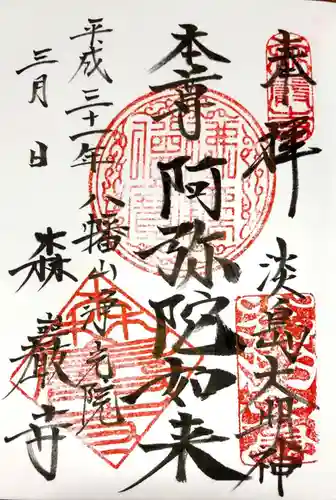 奉拝
淡島大明神
本尊阿弥陀如来
平成三十一年
八幡山浄光院
三月 日
森巌寺